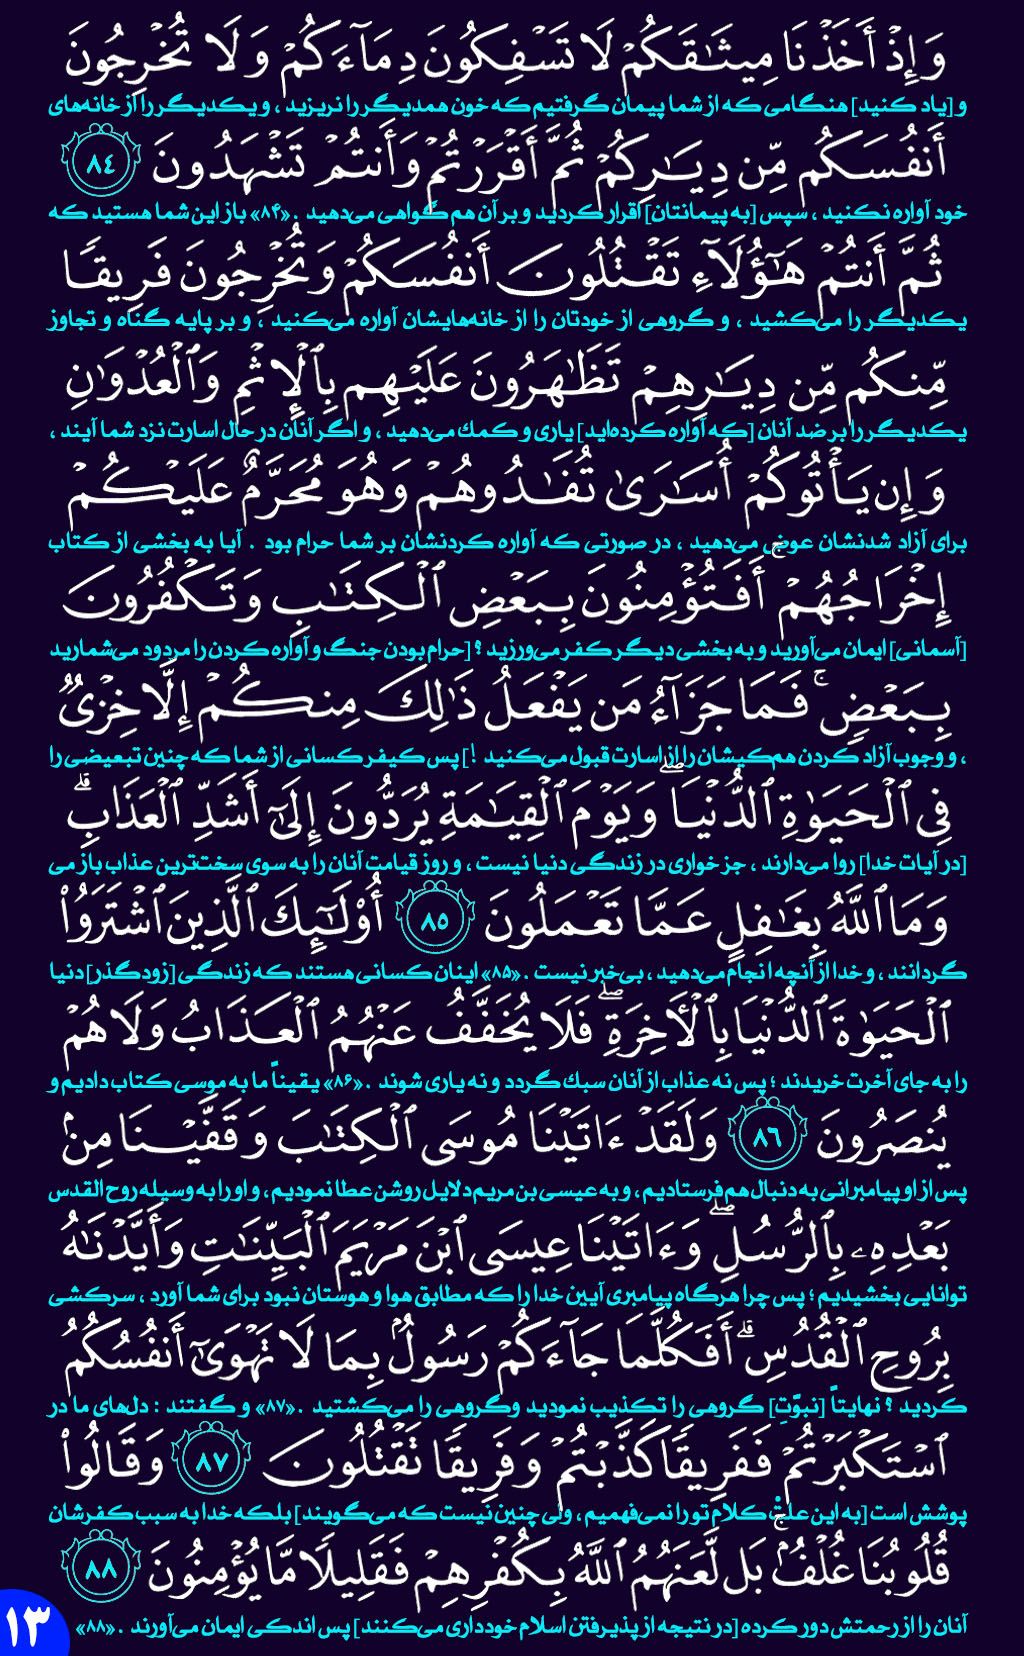 وَإِذْ أَخَذْنَا مِيثَٰقَكُمْ لَا تَسْفِكُونَ دِمَآءَكُمْ وَلَا تُخْرِجُونَ
و [یاد کنید] هنگامی که از شما پیمان گرفتیم که خون همدیگر را نریزید ، و یکدیگر را از خانه‌های
أَنفُسَكُم مِّن دِيَٰرِكُمْ ثُمَّ أَقْرَرْتُمْ وَأَنتُمْ تَشْهَدُونَ ٨٤
خود آواره نکنید ، سپس [به پیمانتان] اقرار کردید و بر آن هم گواهی می‌دهید . «۸۴» باز این شما هستید که
ثُمَّ أَنتُمْ هَٰٓؤُلَآءِ تَقْتُلُونَ أَنفُسَكُمْ وَتُخْرِجُونَ فَرِيقًا
یکدیگر را می‌کشید ، و گروهی از خودتان را از خانه‌هایشان آواره می‌کنید ، و بر پایه گناه و تجاوز
مِّنكُم مِّن دِيَٰرِهِمْ تَظَٰهَرُونَ عَلَيْهِم بِٱلْإِثْمِ وَٱلْعُدْوَٰنِ
یکدیگر را بر ضد آنان [که آواره کرده‌اید] یاری و کمک می‌دهید ، و اگر آنان در حال اسارت نزد شما آیند ،
وَإِن يَأْتُوكُمْ أُسَٰرَىٰ تُفَٰدُوهُمْ وَهُوَ مُحَرَّمٌ عَلَيْكُمْ
برای آزاد شدنشان عوض می‌دهید ، در صورتی که آواره کردنشان بر شما حرام بود . آیا به بخشی از کتاب
إِخْرَاجُهُمْ ۚ أَفَتُؤْمِنُونَ بِبَعْضِ ٱلْكِتَٰبِ وَتَكْفُرُونَ
[آسمانی] ایمان می‌آورید و به بخشی دیگر کفر می‌ورزید ؟ [حرام بودن جنگ و آواره کردن را مردود می‌شمارید
بِبَعْضٍ ۚ فَمَا جَزَآءُ مَن يَفْعَلُ ذَٰلِكَ مِنكُمْ إِلَّا خِزْىٌ
، و وجوب آزاد کردن هم‌کیشان را از اسارت قبول می‌کنید !] پس کیفر کسانی از شما که چنین تبعیضی را
فِى ٱلْحَيَوٰةِ ٱلدُّنْيَا ۖ وَيَوْمَ ٱلْقِيَٰمَةِ يُرَدُّونَ إِلَىٰٓ أَشَدِّ ٱلْعَذَابِ ۗ
[در آیات خدا] روا می‌دارند ، جز خواری در زندگی دنیا نیست ، و روز قیامت آنان را به سوی سخت‌ترین عذاب باز می
وَمَا ٱللَّهُ بِغَٰفِلٍ عَمَّا تَعْمَلُونَ ٨٥ أُو۟لَٰٓئِكَ ٱلَّذِينَ ٱشْتَرَوُا۟
گردانند ، و خدا از آنچه انجام می‌دهید ، بی‌خبر نیست . «۸۵» اینان کسانی هستند که زندگی [زودگذر] دنیا
ٱلْحَيَوٰةَ ٱلدُّنْيَا بِٱلْءَاخِرَةِ ۖ فَلَا يُخَفَّفُ عَنْهُمُ ٱلْعَذَابُ وَلَا هُمْ
را به جای آخرت خریدند ؛ پس نه عذاب از آنان سبک گردد و نه یاری شوند . «۸۶» یقیناً ما به موسی کتاب دادیم و
يُنصَرُونَ ٨٦ وَلَقَدْ ءَاتَيْنَا مُوسَى ٱلْكِتَٰبَ وَقَفَّيْنَا مِنۢ
پس از او پیامبرانی به دنبال هم فرستادیم ، و به عیسی بن مریم دلایل روشن عطا نمودیم ، و او را به وسیله روح القدس
بَعْدِهِۦ بِٱلرُّسُلِ ۖ وَءَاتَيْنَا عِيسَى ٱبْنَ مَرْيَمَ ٱلْبَيِّنَٰتِ وَأَيَّدْنَٰهُ
توانایی بخشیدیم ؛ پس چرا هرگاه پیامبری آیین خدا را که مطابق هوا و هوستان نبود برای شما آورد ، سرکشی
بِرُوحِ ٱلْقُدُسِ ۗ أَفَكُلَّمَا جَآءَكُمْ رَسُولٌۢ بِمَا لَا تَهْوَىٰٓ أَنفُسُكُمُ
کردید ؟ نهایتاً [نبوّت] گروهی را تکذیب نمودید وگروهی را می‌کشتید . «۸۷» و گفتند : دل‌های ما در
ٱسْتَكْبَرْتُمْ فَفَرِيقًا كَذَّبْتُمْ وَفَرِيقًا تَقْتُلُونَ ٨٧ وَقَالُوا۟
پوشش است [به این علت کلام تو را نمی‌فهمیم ، ولی چنین نیست که می‌گویند] بلکه خدا به سبب کفرشان
قُلُوبُنَا غُلْفٌۢ ۚ بَل لَّعَنَهُمُ ٱللَّهُ بِكُفْرِهِمْ فَقَلِيلًا مَّا يُؤْمِنُونَ ٨٨
آنان را از رحمتش دور کرده [در نتیجه از پذیرفتن اسلام خودداری می‌کنند] پس اندکی ایمان می‌آورند . «۸۸»
۱۳